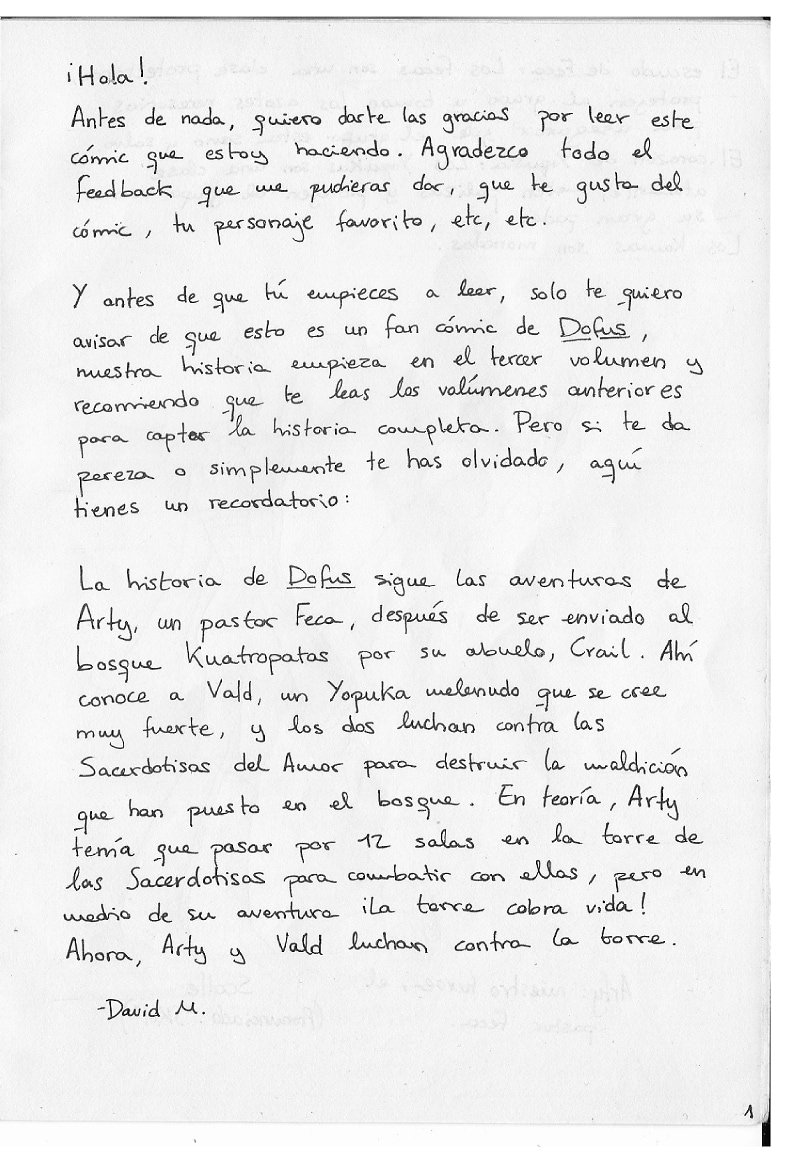 ¡Hola!
Antes de nada, quiero darte las gracias por leer este
cómic que estoy haciendo. Agradezco todo el
feedback que me pudieras dar, que te gusta del
cómic, tu personaje favorito, etc, etc.
Y antes de que tú empieces a leer, solo te quiero
avisar de que esto es un fan cómic de Dofus,
nuestra historia empieza en el tercer volumen y
recomiendo que te leas los volúmenes anteriores
para captar la historia completa. Pero si te da
pereza o simplemente te has olvidado, aquí
tienes un recordatorio:
La historia de Dofus sigue las aventuras de
Arty, un pastor Feca, después de ser enviado al
bosque Kuatropatas por su abuelo, Crail. Ahí
conoce a Vald, un Yopuka melenudo que se cree
muy fuerte, y los dos luchan contra las
Sacerdotisas del Amor para destruir la maldición
que han puesto en el bosque. En teoría, Arty
tenía que pasar por 12 salas en la torre de
las Sacerdotisas para combatir con ellas, pero en
medio de su aventura ¡La torre cobra vida!
Ahora, Arty y Vald luchan contra la torre.
-David M.
1